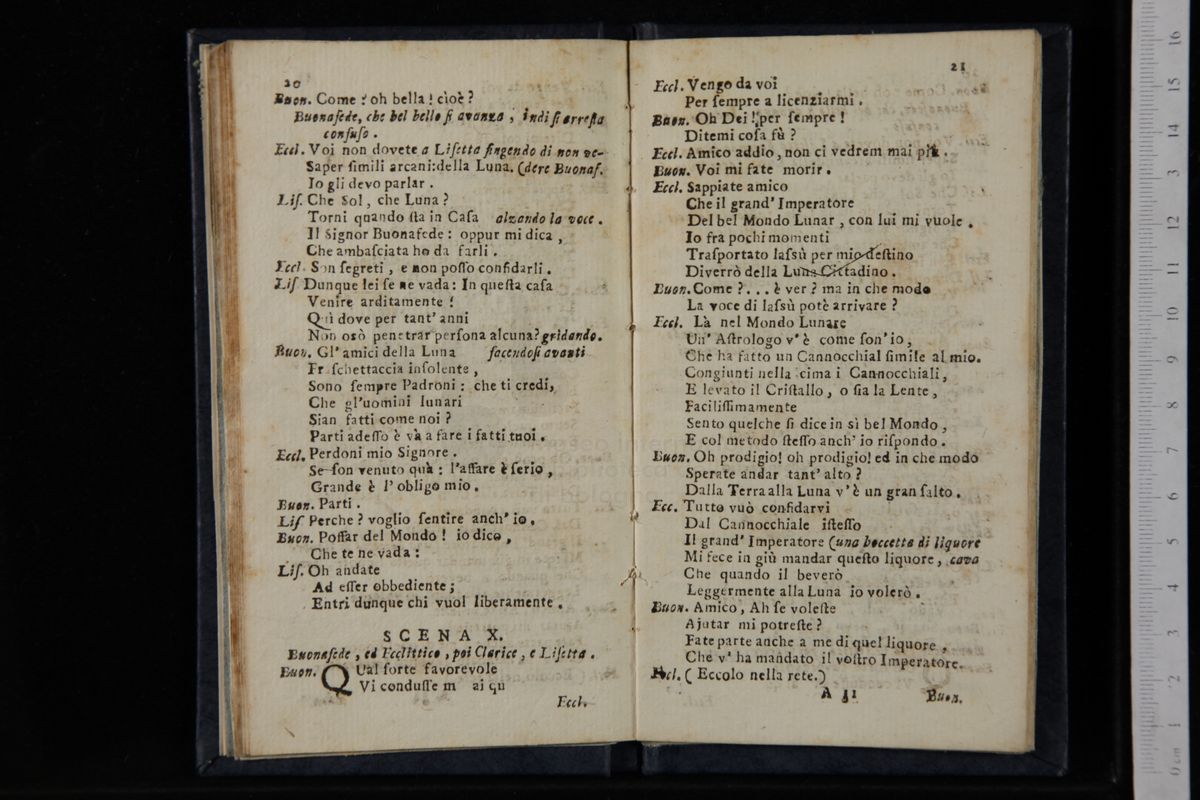 20
Buon. Come ? oh bella ! cioè ?
Buonafede, che bel bello si avanza , indi si arresta
confuso .
Eccl. Voi non dovete a Lisetta fingendo di non ve-
Saper simili arcani della Luna. (dere Buonaf.
Io gli devo parlar .
Lis. Che Sol , che Luna ?
Torni quando sta in Casa alzando la voce .
Il Signor Buonafede : oppur mi dica ,
Che ambasciata ho da farli .
Eccl. Son segreti , e non posso confidarli .
Lis Dunque lei se ne vada : In questa casa
Venire arditamente !
Quì dove per tant' anni
Non osò penetrar persona alcuna? gridando.
Buon. Gl' amici della Luna facendosi avanti
Fraschettaccia insolente ,
Sono sempre Padroni : che ti credi,
Che gl'uomini lunari
Sian fatti come noi ?
Parti adesso è va a fare i fatti tuoi .
Eccl. Perdoni mio Signore .
Se son venuto quà : l'affare è serio ,
Grande è l' obligo mio .
Buon. Parti .
Lis Perche ? voglio sentire anch' io .
Buon. Possar del Mondo ! io dico ,
Che te ne vada :
Lis. Oh andate
Ad esser obbediente ;
Entri dunque chi vuol liberamente .
SCENA X.
Buonafede , ed Ecclittico , poi Clarice , e Lisetta .
Buon. QUal sorte favorevole
Vi condusse m ai qu
Eccl.
21
Eccl. Vengo da voi
Per sempre a licenziarmi .
Buon. Oh Dei ! per sempre !
Ditemi cosa fù ?
Eccl. Amico addio , non ci vedrem mai più .
Buon. Voi mi fate morir .
Eccl. Sappiate amico
Che il grand' Imperatore
Del bel Mondo Lunar , con lui mi vuole .
Io fra pochi momenti
Trasportato lassù per mio destino
Diverrò della Luna Cittadino .
Buon. Come ? . . . è ver ? ma in che modo
La voce di lassù potè arrivare ?
Eccl. Là nel Mondo Lunare
Un' Astrologo v' è come son' io ,
Che ha fatto un Cannocchial simile al mio.
Congiunti nella cima i Cannocchiali,
E levato il Cristallo , o sia la Lente ,
Facilissimamente
Sento quelche si dice in sì bel Mondo ,
E col metodo stesso anch' io rispondo .
Buon. Oh prodigio! oh prodigio! ed in che modo
Sperate andar tant' alto ?
Dalla Terra alla Luna v' è un gran salto .
Ecc. Tutto vuò confidarvi
Dal Cannocchiale istesso
Il grand' Imperatore (una boccetta di liquore
Mi fece in giù mandar questo liquore , cava
Che quando il beverò
Leggermente alla Luna io volerò .
Buon. Amico , Ah se voleste
Ajutar mi potreste ?
Fate parte anche a me di quel liquore ,
Che v' ha mandato il vostro Imperatore.
Eccl. ( Eccolo nella rete. )
A
Buon.